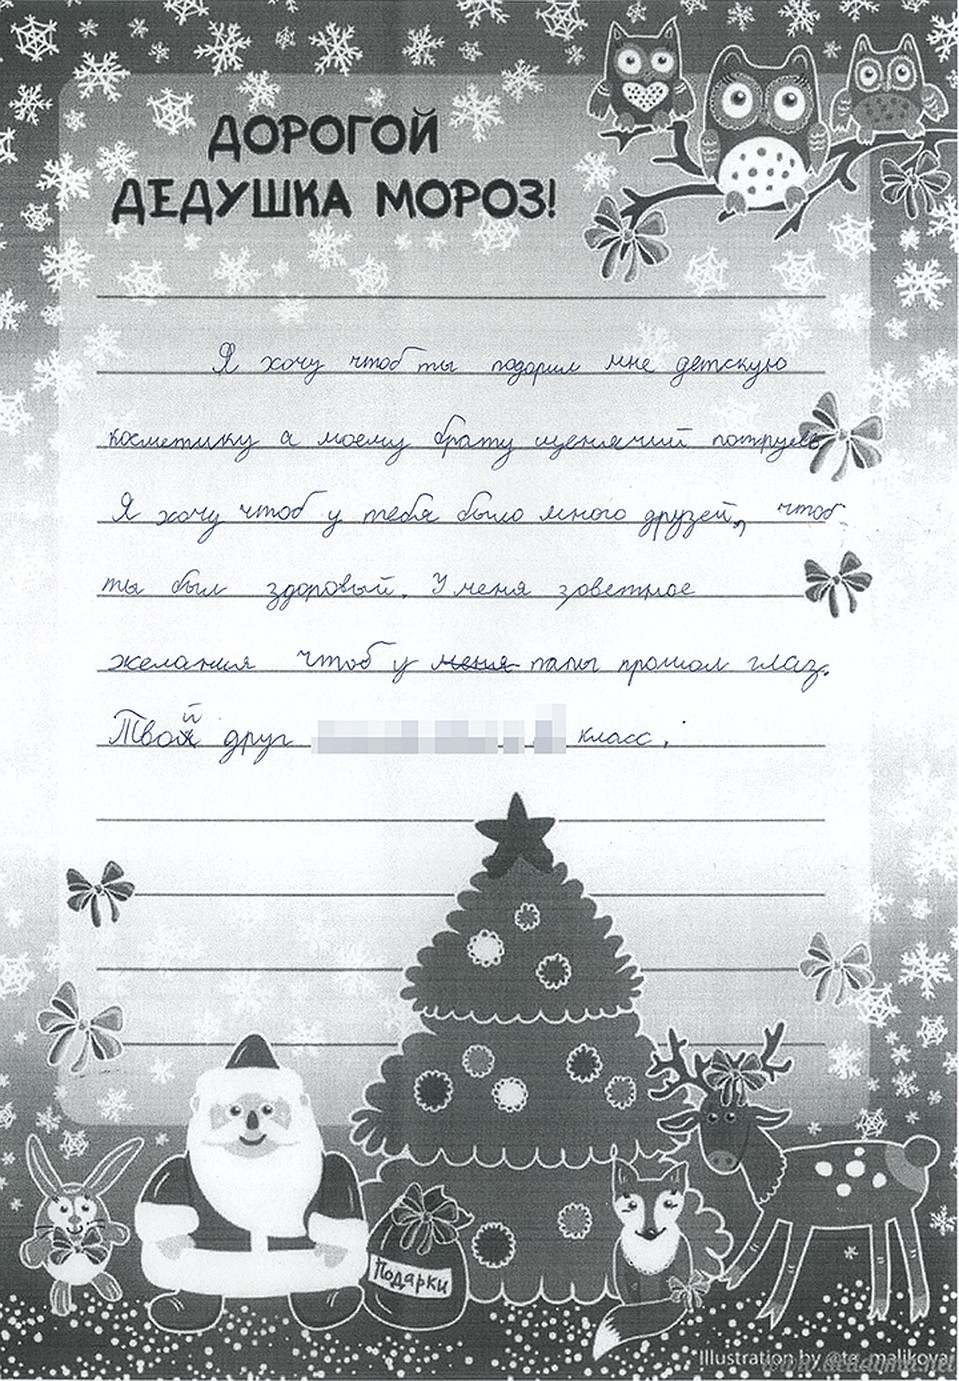 ДОРОГОЙ
ДЕДУШКА МОРОЗ!
Я хочу чтоб ты подарил мне детскую
косметику а моему брату щенячий патруль
Я хочу чтоб у тебя было много друзей, чтоб
ты был здоровый. У меня заветное
желания чтоб у меня папы прошол глаз.
Твой друг класс.
Подарки
Illustration by @ta_malikova